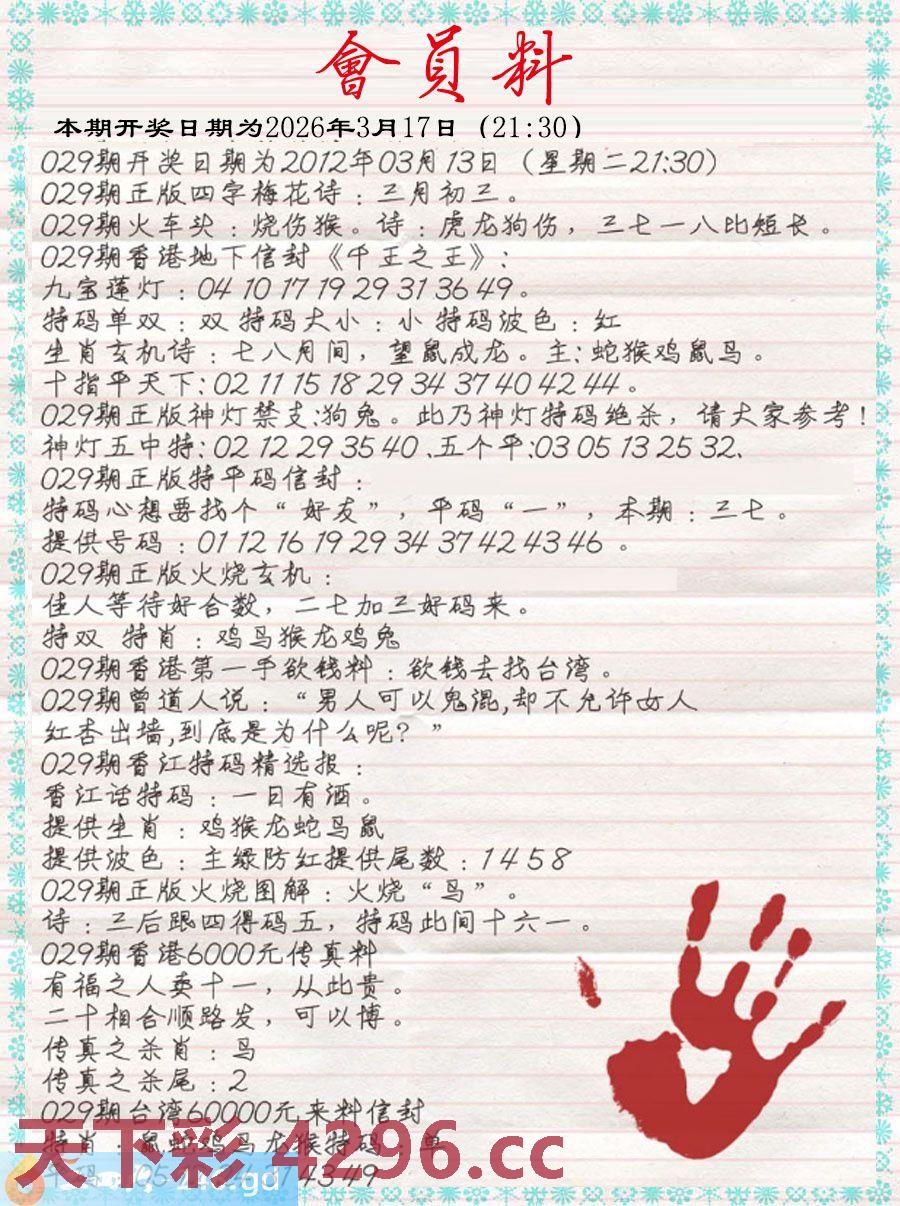 會員料
本期开奖日期为2026年3月17日（21:30）
029期开奖日期为2012年03月13日（星期二21:30）
029期正版四字梅花诗：三月初三。
029期火车头：烧伤猴。诗：虎龙狗伤，三七一八比短长。
029期香港地下信封《千王之王》:
九宝莲灯：04 10 17 19 29 31 36 49。
特码单双：双 特码大小：小 特码波色：红
生肖玄机诗：七八月间，望鼠成龙。主:蛇猴鸡鼠马。
十指平天下:02 11 15 18 29 34 37 40 42 44。
029期正版神灯禁支:狗兔。此乃神灯特码绝杀，请大家参考！
神灯五中特:02 12 29 35 40、五个平:03 05 13 25 32、
029期正版特平码信封：
特码心想要找个“好友”，平码“一”，本期：三七。
提供号码：01 12 16 19 29 34 37 42 43 46 。
029期正版火烧玄机：
佳人等待好合数，二七加三好码来。
特双 特肖：鸡马猴龙鸡兔
029期香港第一手欲钱料：欲钱去找台湾。
029期曾道人说：“男人可以鬼混,却不允许女人
红杏出墙,到底是为什么呢？”
029期香江特码精选报：
香江话特码：一日有酒。
提供生肖：鸡猴龙蛇马鼠
提供波色：主绿防红提供尾数：1 4 5 8
029期正版火烧图解：火烧“马”。
诗：三后跟四得码五，特码此间十六一。
029期香港6000元传真料
有福之人卖十一，从此贵。
二十相合顺路发，可以博。
传真之杀肖：马
传真之杀尾：2
029期台湾60000元来料信封
特肖：鼠蛇鸡马龙猴特码：单
天下彩 4296.cc
43 49